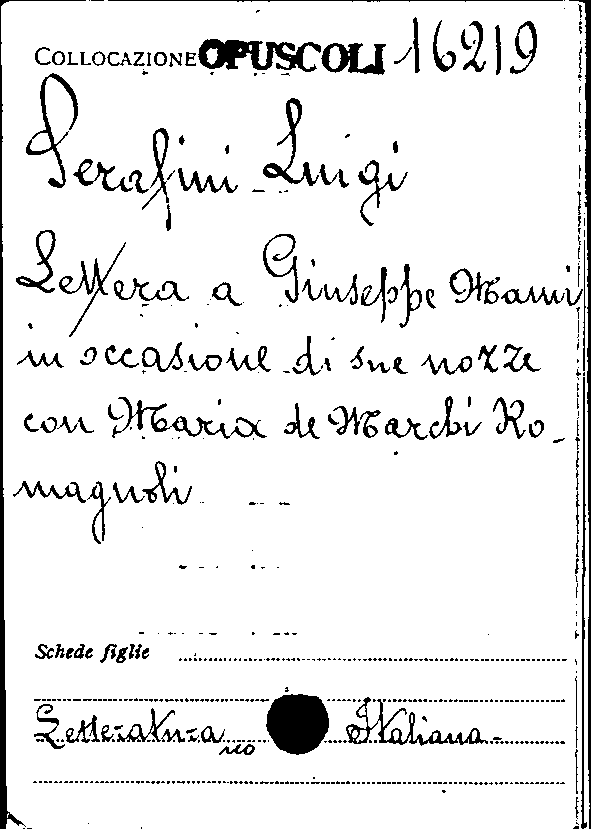 COLLOCAZIONE OPUSCOLI 16219
Serafini Luigi
Lettera a Giuseppe Mami
in occasione di sue nozze
con Maria de Marchi Ro-
magnoli
Schede figlie
Letteratura Italiana-